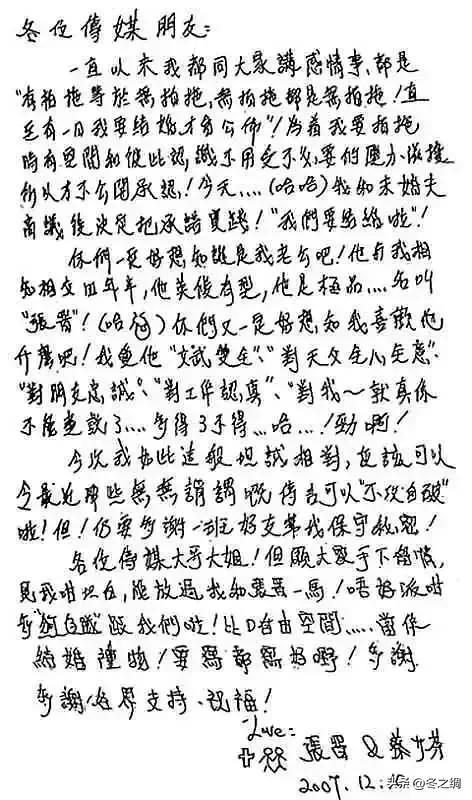 各位傳媒朋友:
一直以來我都同大家講感情事,都是
"有拍拖等於無拍拖,無拍拖都是無拍拖!直
至有一日我要結婚,才會公佈"!為着我要拍拖
時有空間和彼此認識不用受不必要的壓力
所以才不公開承認!今天....(哈哈)我和未婚夫
商議後決定把承諾實踐!"我們要結婚啦"!
你們一定好想知誰是我老公吧!他與我相
知相交四年半,他英俊有型,他是極品....名叫
"張晉"!(哈哈)你們又一定好想知我喜歡他
什麼吧!我愛他"文武雙全"、"對天父全心全意"、
"對朋友忠誠"、"對工作認真"、"對我~就真係
不能盡數了....多得3不得...哈...!勁啊!
今次我如此這般坦誠相對,應該可以
令最近那些無無謂謂嘅傳言可以"不攻自破"
啦!但!仍要多謝一班好友幫我保守秘密!
各位傳媒大哥大姐!但願大家手下留情,
見我咁坦白,能放過我和張晉一馬!唔好派咁
多"狗自隊"跟我們啦!比D自由空間.....當係
結婚禮物!要寫都寫好嘢!多謝
多謝各界支持、祝福!
Love:
張晉 & 蔡少芬
2007.12.
头条 @冬之綢